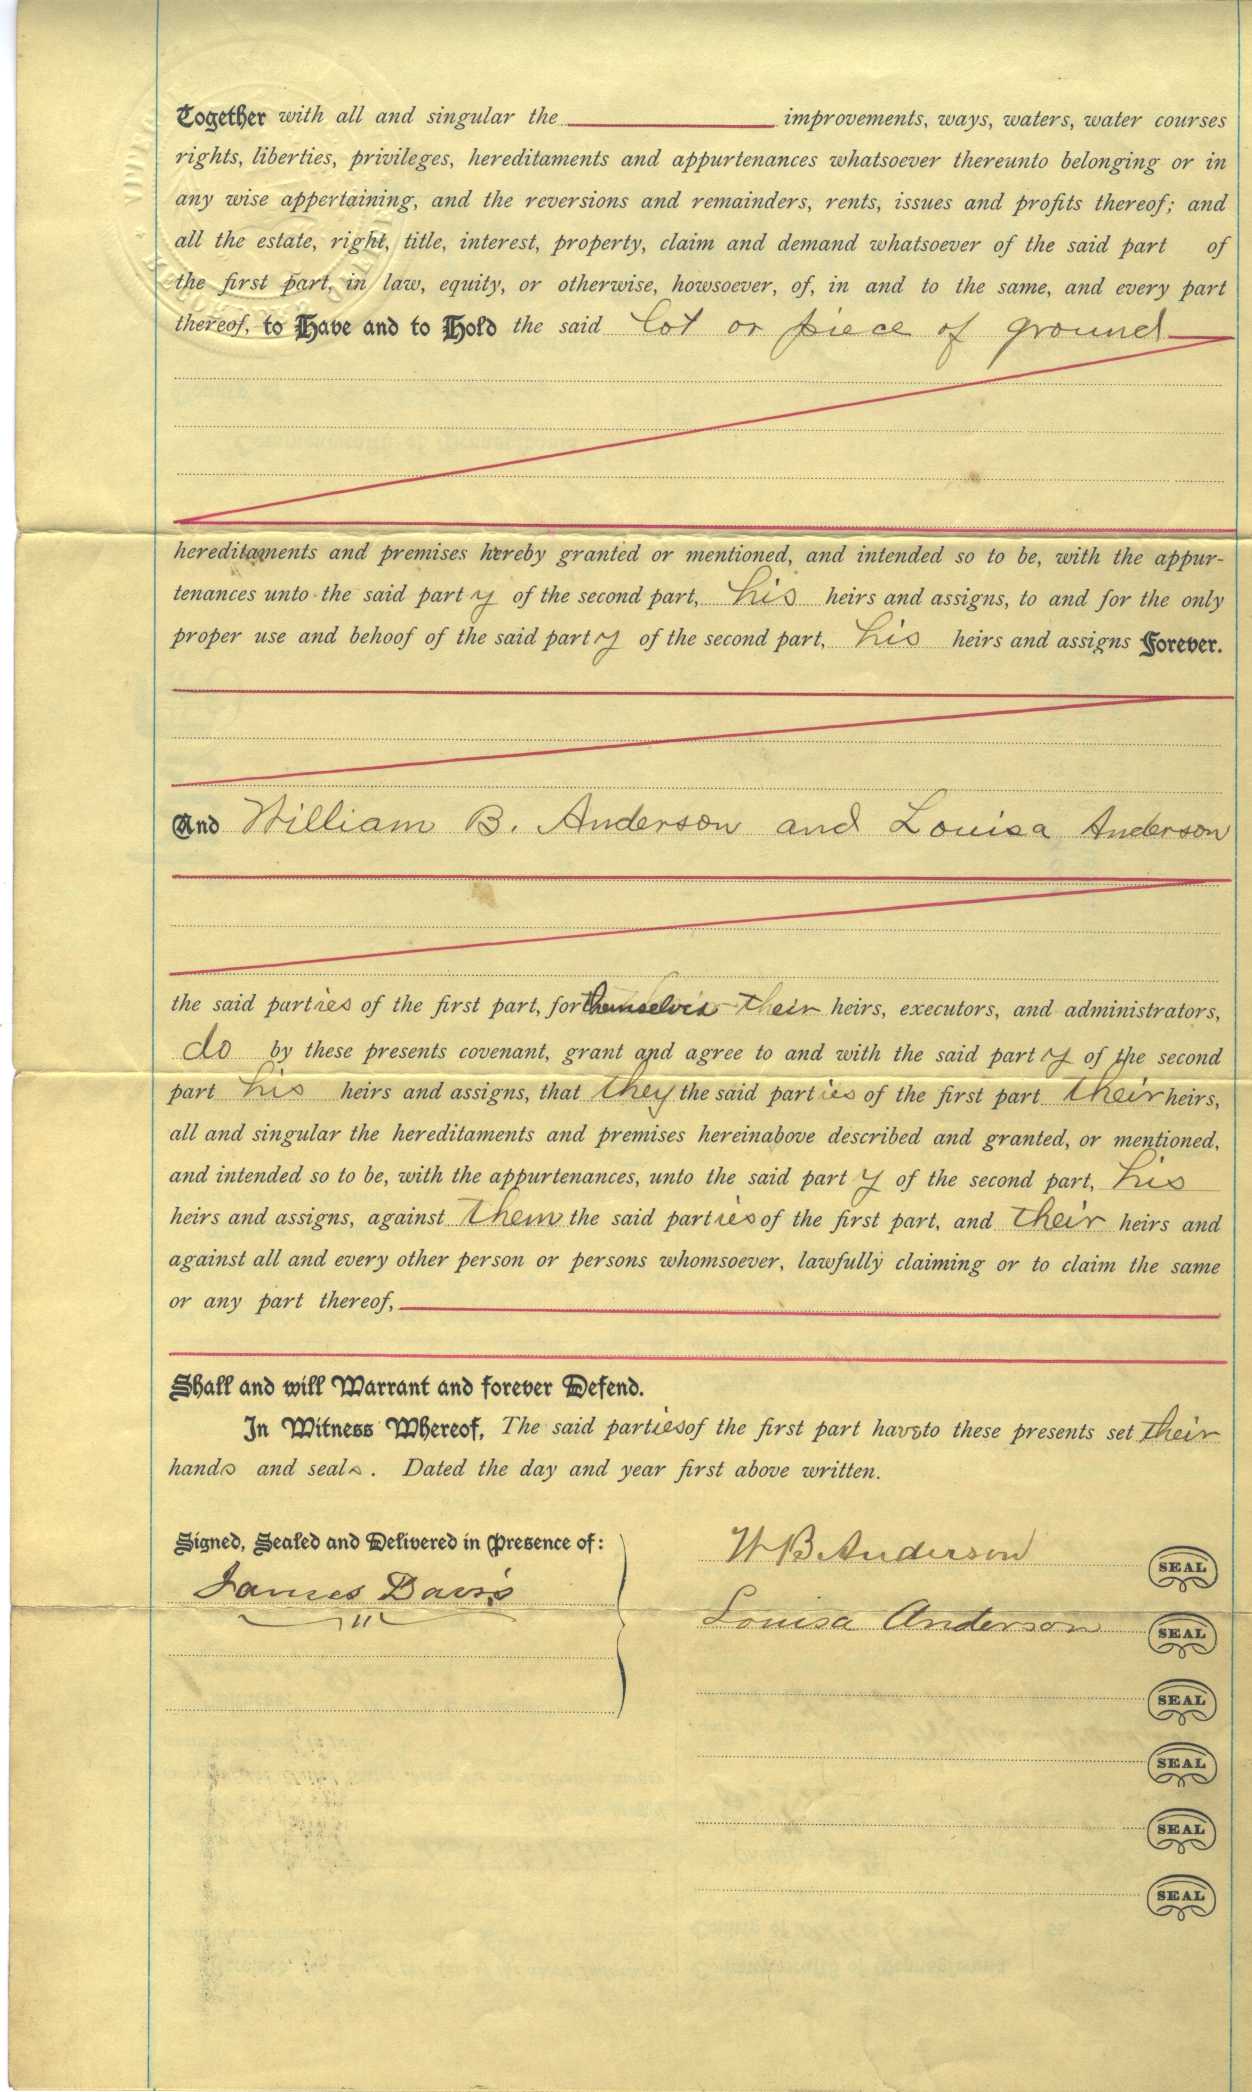 Together with all and singular the improvements, ways, waters, water courses
rights, liberties, privileges, hereditaments and appurtenances whatsoever thereunto belonging or in
any wise appertaining, and the reversions and remainders, rents, issues and profits thereof; and
all the estate, right, title, interest, property, claim and demand whatsoever of the said part of
the first part, in law, equity, or otherwise, howsoever, of, in and to the same, and every part
thereof, to Have and to Hold the said lot or piece of ground
hereditaments and premises hereby granted or mentioned, and intended so to be, with the appur-
tenances unto the said party of the second part, his heirs and assigns, to and for the only
proper use and behoof of the said party of the second part, his heirs and assigns Forever.
And William B. Anderson and Louisa Anderson
the said parties of the first part, for themselves their heirs, executors, and administrators,
do by these presents covenant, grant and agree to and with the said party of the second
part his heirs and assigns, that they the said parties of the first part their heirs,
all and singular the hereditaments and premises hereinabove described and granted, or mentioned,
and intended so to be, with the appurtenances, unto the said party of the second part, his
heirs and assigns, against them the said parties of the first part, and their heirs and
against all and every other person or persons whomsoever, lawfully claiming or to claim the same
or any part thereof,
Shall and will Warrant and forever Defend.
In Witness Whereof, The said parties of the first part have to these presents set their
hands and seals. Dated the day and year first above written.
Signed, Sealed and Delivered in Presence of:
W B Anderson SEAL
James Davis
Louisa Anderson SEAL
SEAL
SEAL
SEAL
SEAL